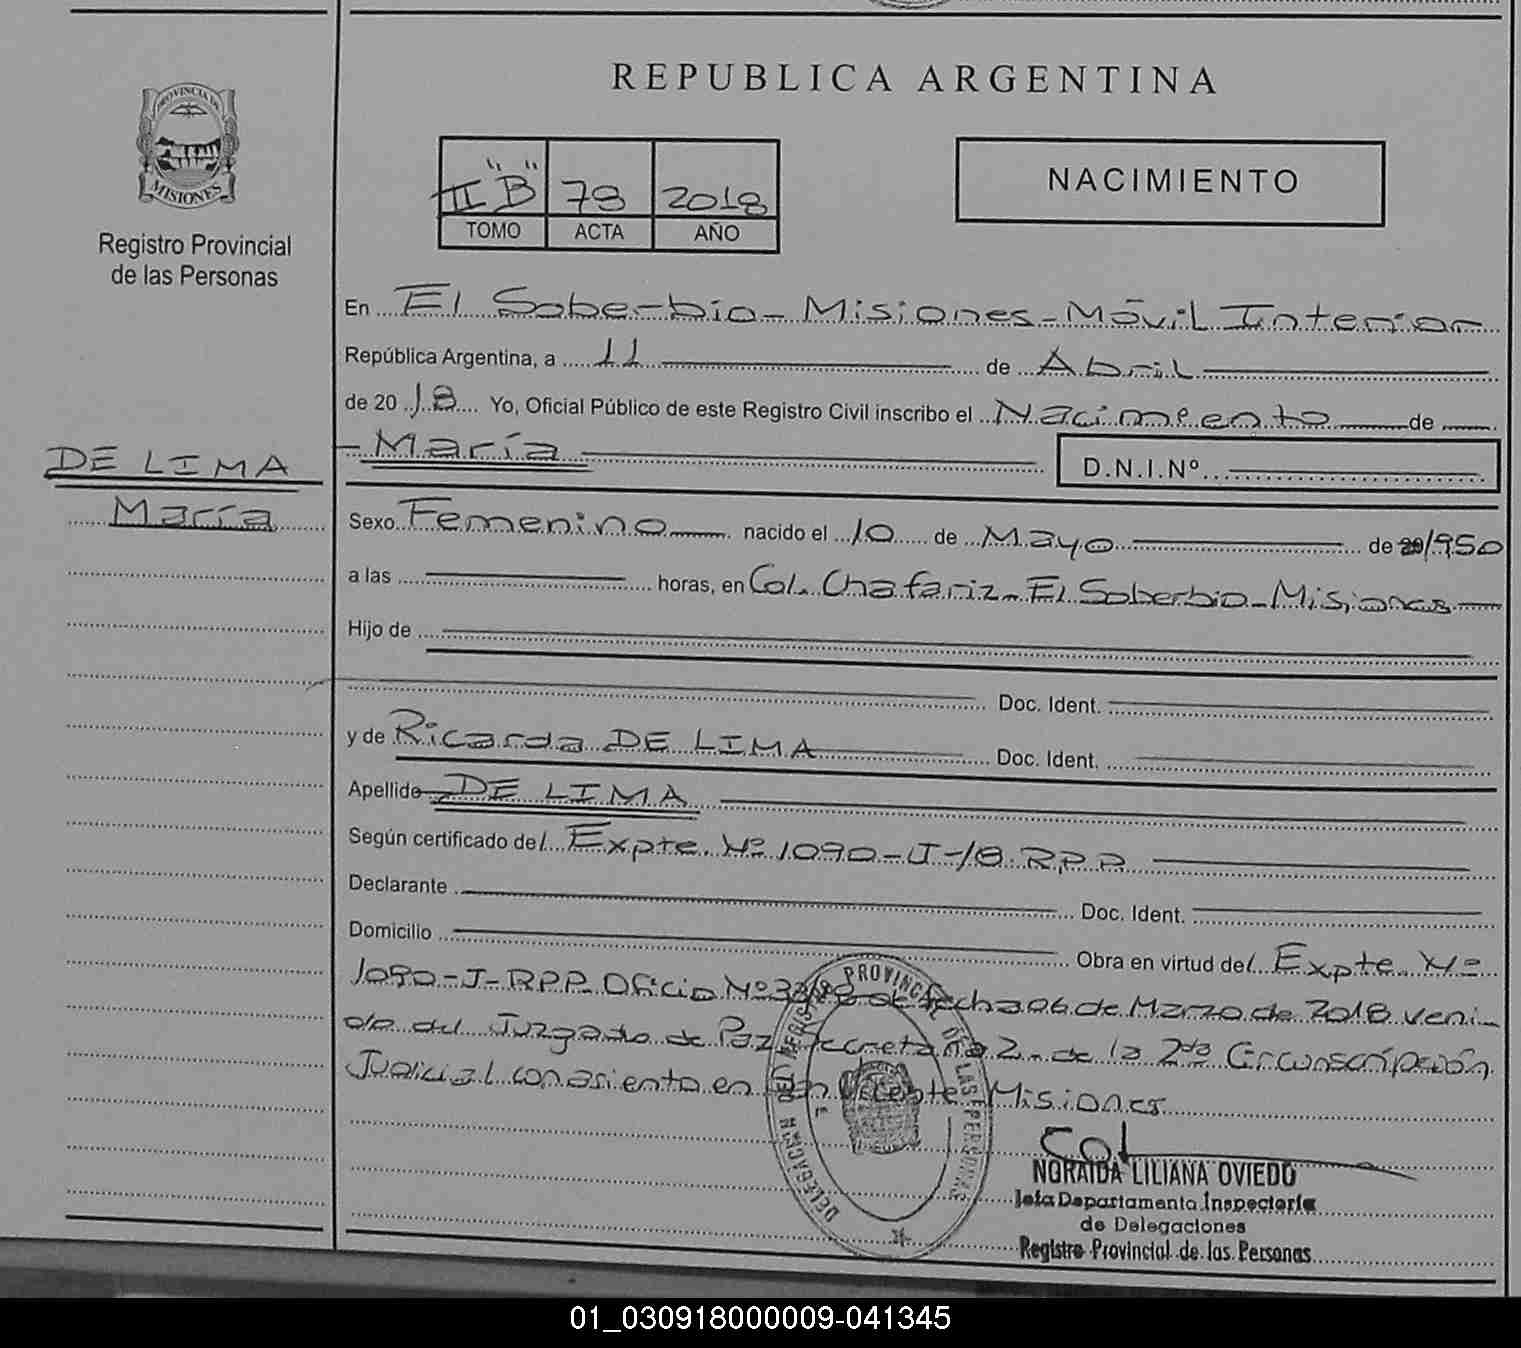 REPUBLICA ARGENTINA
PROVINCIA DE
MISIONES
Registro Provincial
de las Personas
II "B" 78 2018
TOMO ACTA AÑO
NACIMIENTO
En El Soberbio - Misiones - Móvil Interior
República Argentina, a 11 de Abril
de 2018 Yo, Oficial Público de este Registro Civil inscribo el Nacimiento de
María D.N.I.Nº
DE LIMA
María
Sexo Femenino nacido el 10 de Mayo de 1950
a las horas, en Col. Chafariz - El Soberbio - Misiones
Hijo de
Doc. Ident.
y de Ricarda DE LIMA Doc. Ident.
Apellido DE LIMA
Según certificado del Expte. Nº 1090-J-18 R.P.P.
Declarante Doc. Ident.
Domicilio Obra en virtud del Expte. Nº
1090-J-RPP Oficio Nº de fecha 06 de Marzo de 2018 veni-
do del Juzgado de Paz Secretaría 2 - de la 2da Circunscripción
Judicial con asiento en San Vicente - Misiones
DELEGACION DEL REGISTRO PROVINCIAL DE LAS PERSONAS
NORAIDA LILIANA OVIEDO
Jefa Departamento Inspectoría
de Delegaciones
Registro Provincial de las Personas
01_030918000009-041345